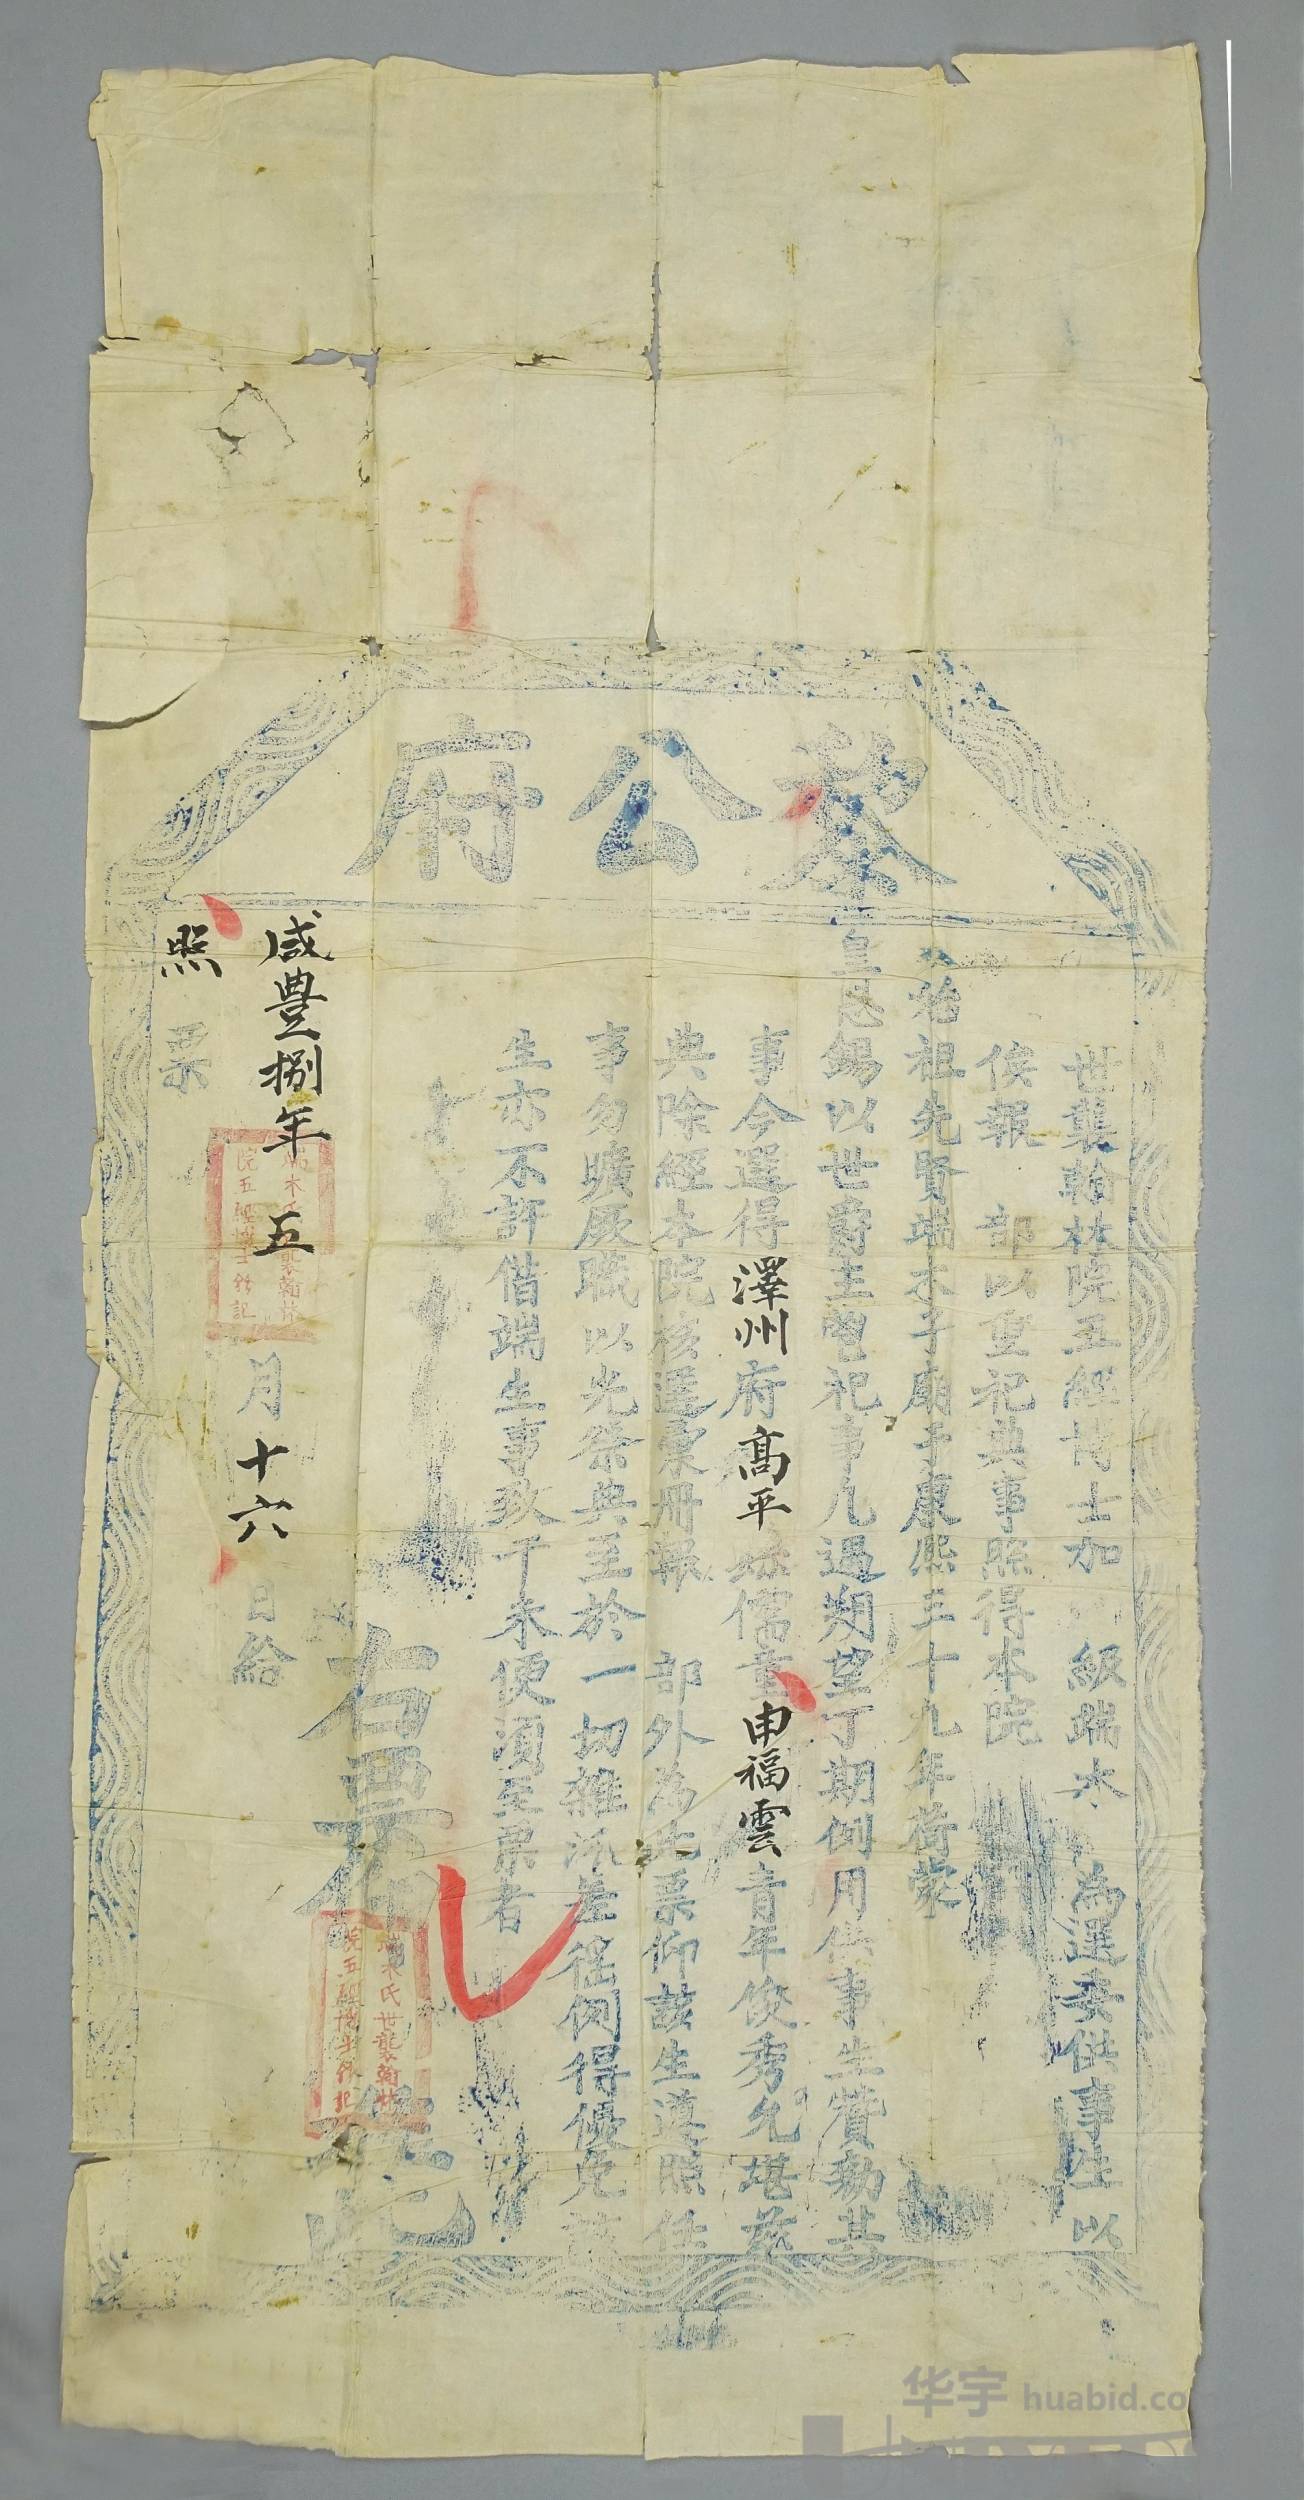 黎公府
世襲翰林院五經博士加 級端木 為選委供事生以
俟報 部以重祀典事照得本院
始祖先賢端木子廟于康熙三十九年荷蒙
皇恩錫以世爵主鬯祀事凡遇期望丁期例用供事生贊勷其
事今選得澤州府高平 儒童申福雲青年俊秀允堪茲
典除經本院核選彙冊報 部外為此票仰該生遵照任
事勿曠厥職以光祭典至於一切雜汎差徭例得優免該
生亦不許借端生事致干未便須至票者
右票
咸豐捌年五月十六日給
照票
端木氏世襲翰林
院五經博士鈐記
端木氏世襲翰林
院五經博士鈐記
华宇 huabid.co